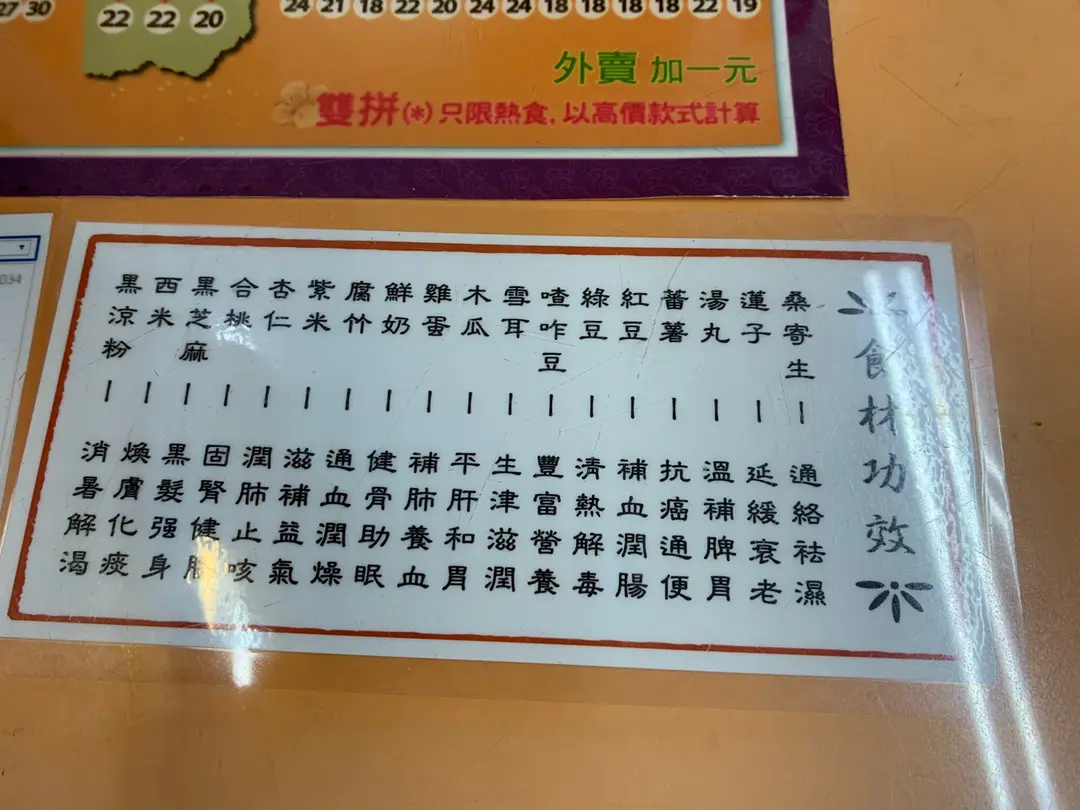 27 30
22 22 20
24 21 18 22 20 24 24 18 18 18 18 22 19
外賣 加一元
雙拼(*)只限熱食,以高價款式計算
034
食材功效
桑寄生 — 通絡祛濕
蓮子 — 延緩衰老
湯丸 — 溫補脾胃
蕃薯 — 抗癌通便
紅豆 — 補血潤腸
綠豆 — 清熱解毒
喳咋豆 — 豐富營養
雪耳 — 生津滋潤
木瓜 — 平肝和胃
雞蛋 — 補肺養血
鮮奶 — 健骨助眠
腐竹 — 通血潤燥
紫米 — 滋補益氣
杏仁 — 潤肺止咳
合桃 — 固腎健腦
黑芝麻 — 黑髮强身
西米 — 煥膚化痰
黑涼粉 — 消暑解渴